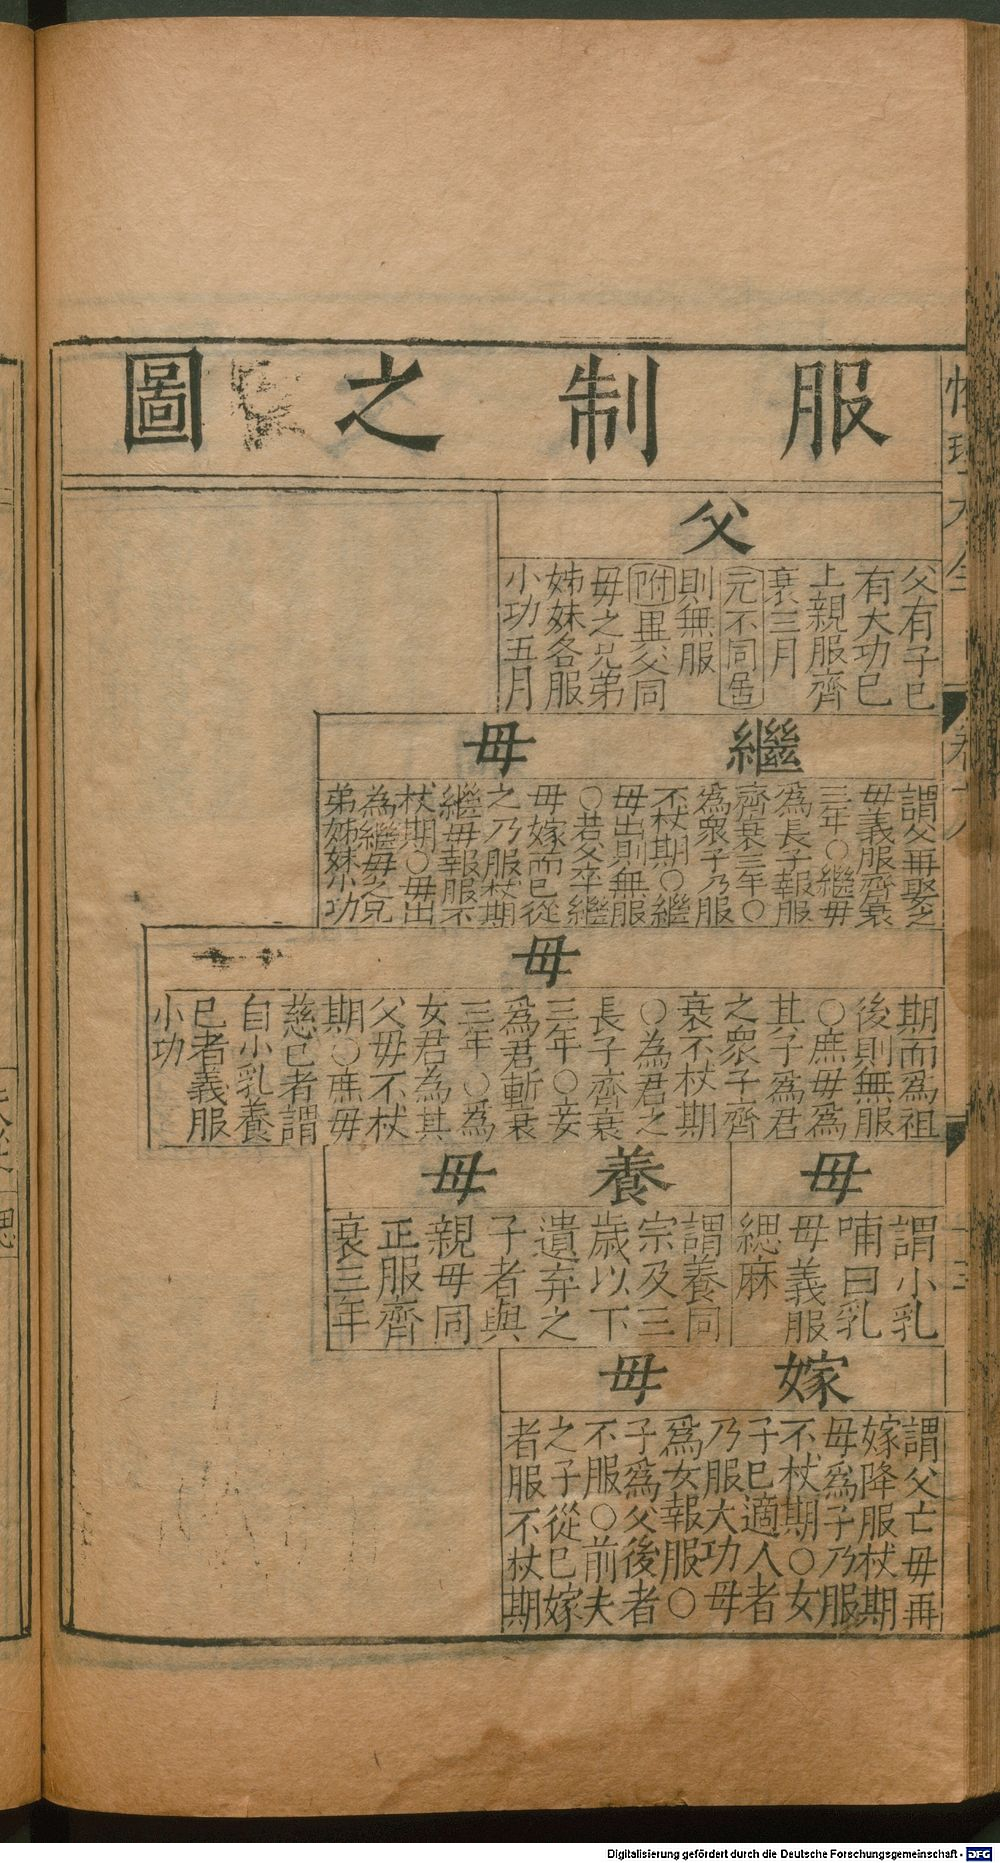 服制之圖
父
父有子已
有大功已
上親服齊
衰三月
元不同居
則無服
附異父同
母之兄弟
姊妹各服
小功五月
繼母
謂父再娶之
母義服齊衰
三年○繼母
爲長子報服
齊衰三年○
爲衆子乃服
不杖期○繼
母出則無服
○若父卒繼
母嫁而已從
之乃服杖期
繼母報服不
杖期○母出
爲繼母之兄
弟姊妹小功
母
期而爲祖
後則無服
○庶母爲
其子爲君
之衆子齊
衰不杖期
○為君之
長子齊衰
三年○妾
爲君斬衰
三年○爲
女君為其
父母不杖
期○庶母
慈已者謂
自小乳養
已者義服
小功
母
謂小乳
哺曰乳
母義服
緦麻
養母
謂養同
宗及三
歲以下
遺弃之
子者與
親母同
正服齊
衰三年
嫁母
謂父亡母再
嫁降服杖期
母爲子乃服
不杖期○女
子已適人者
乃服大功母
爲女報服○
子爲父後者
不服○前夫
之子從已嫁
者服不杖期
Digitalisierung gefördert durch die Deutsche Forschungsgemeinschaft - DFG